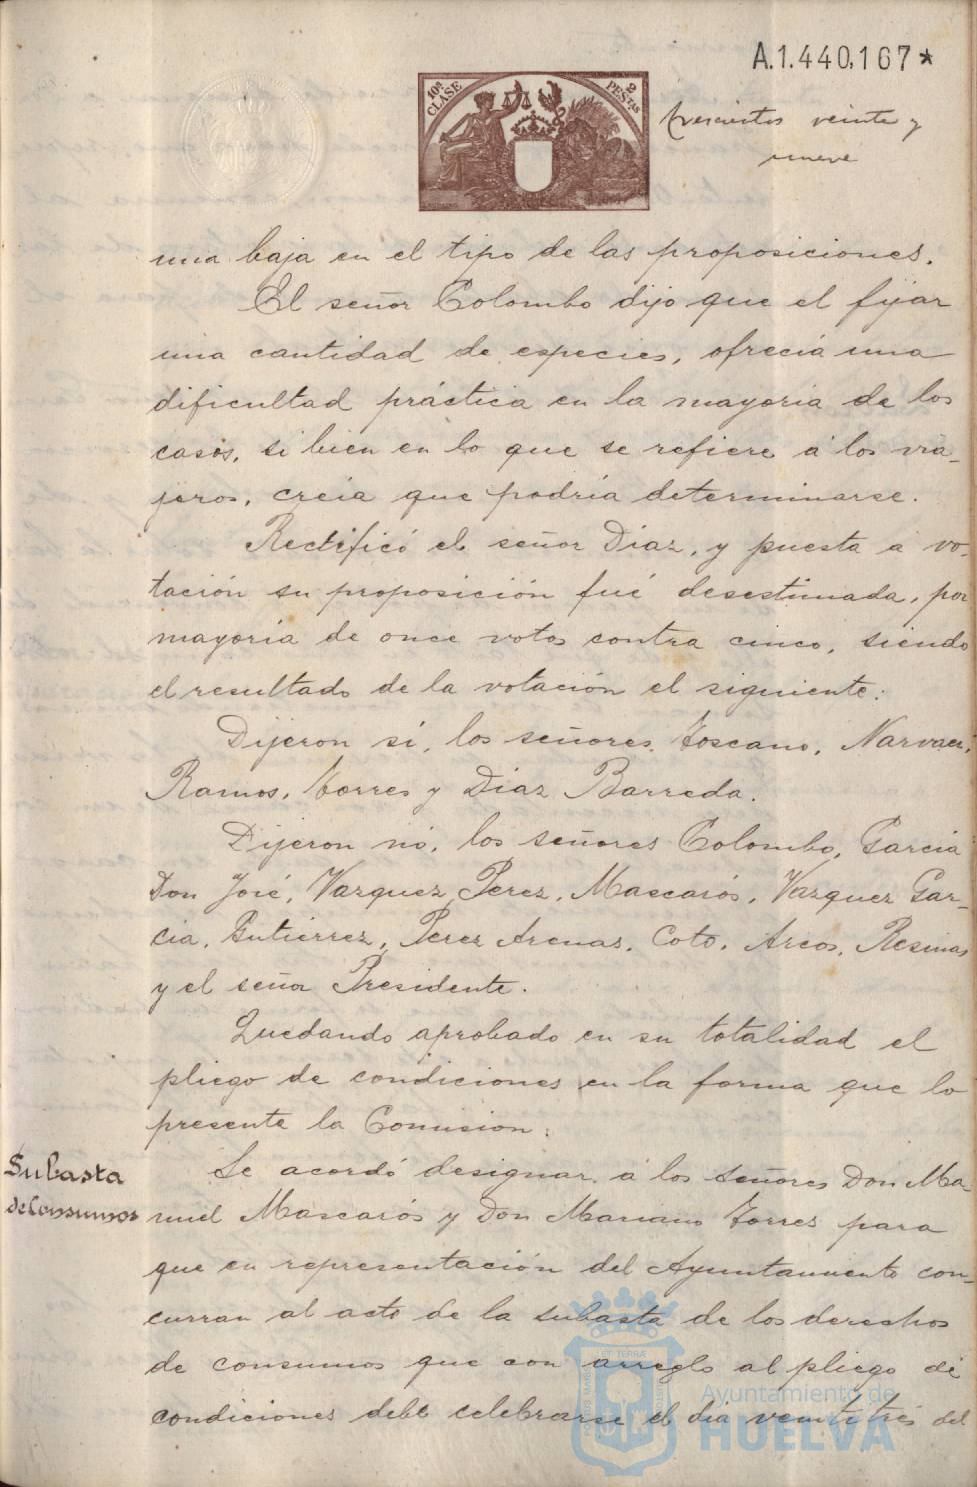 A.1.440,167*
10ª CLASE
2 PESTAS
trescientos veinte y
nueve
una baja en el tipo de las proposiciones.
El señor Colombo dijo que el fijar
una cantidad de especies, ofrecia una
dificultad práctica en la mayoria de los
casos, si bien en lo que se refiere á los via-
jeros, creia que podria determinarse.
Rectificó el señor Diaz, y puesta á vo-
tación su proposición fué desestimada, por
mayoria de once votos contra cinco, siendo
el resultado de la votación el siguiente:
Dijeron si, los señores Toscano, Narvaez,
Ramos, Torres y Diaz Barreda.
Dijeron nó, los señores Colombo, Garcia
Don José, Vazquez Perez, Mascarós, Vazquez Gar-
cia, Gutierrez, Perez Arenas, Coto, Arcos, Resinas
y el señor Presidente.
Quedando aprobado en su totalidad el
pliego de condiciones en la forma que lo
presenta la Comision.
Subasta
de Consumos
Se acordó designar á los señores Don Ma-
nuel Mascarós y Don Mariano Torres para
que en representación del Ayuntamiento con-
curran al acto de la subasta de los derechos
de consumos que con arreglo al pliego de
condiciones debe celebrarse el dia veintitres del
Ayuntamiento de
HUELVA